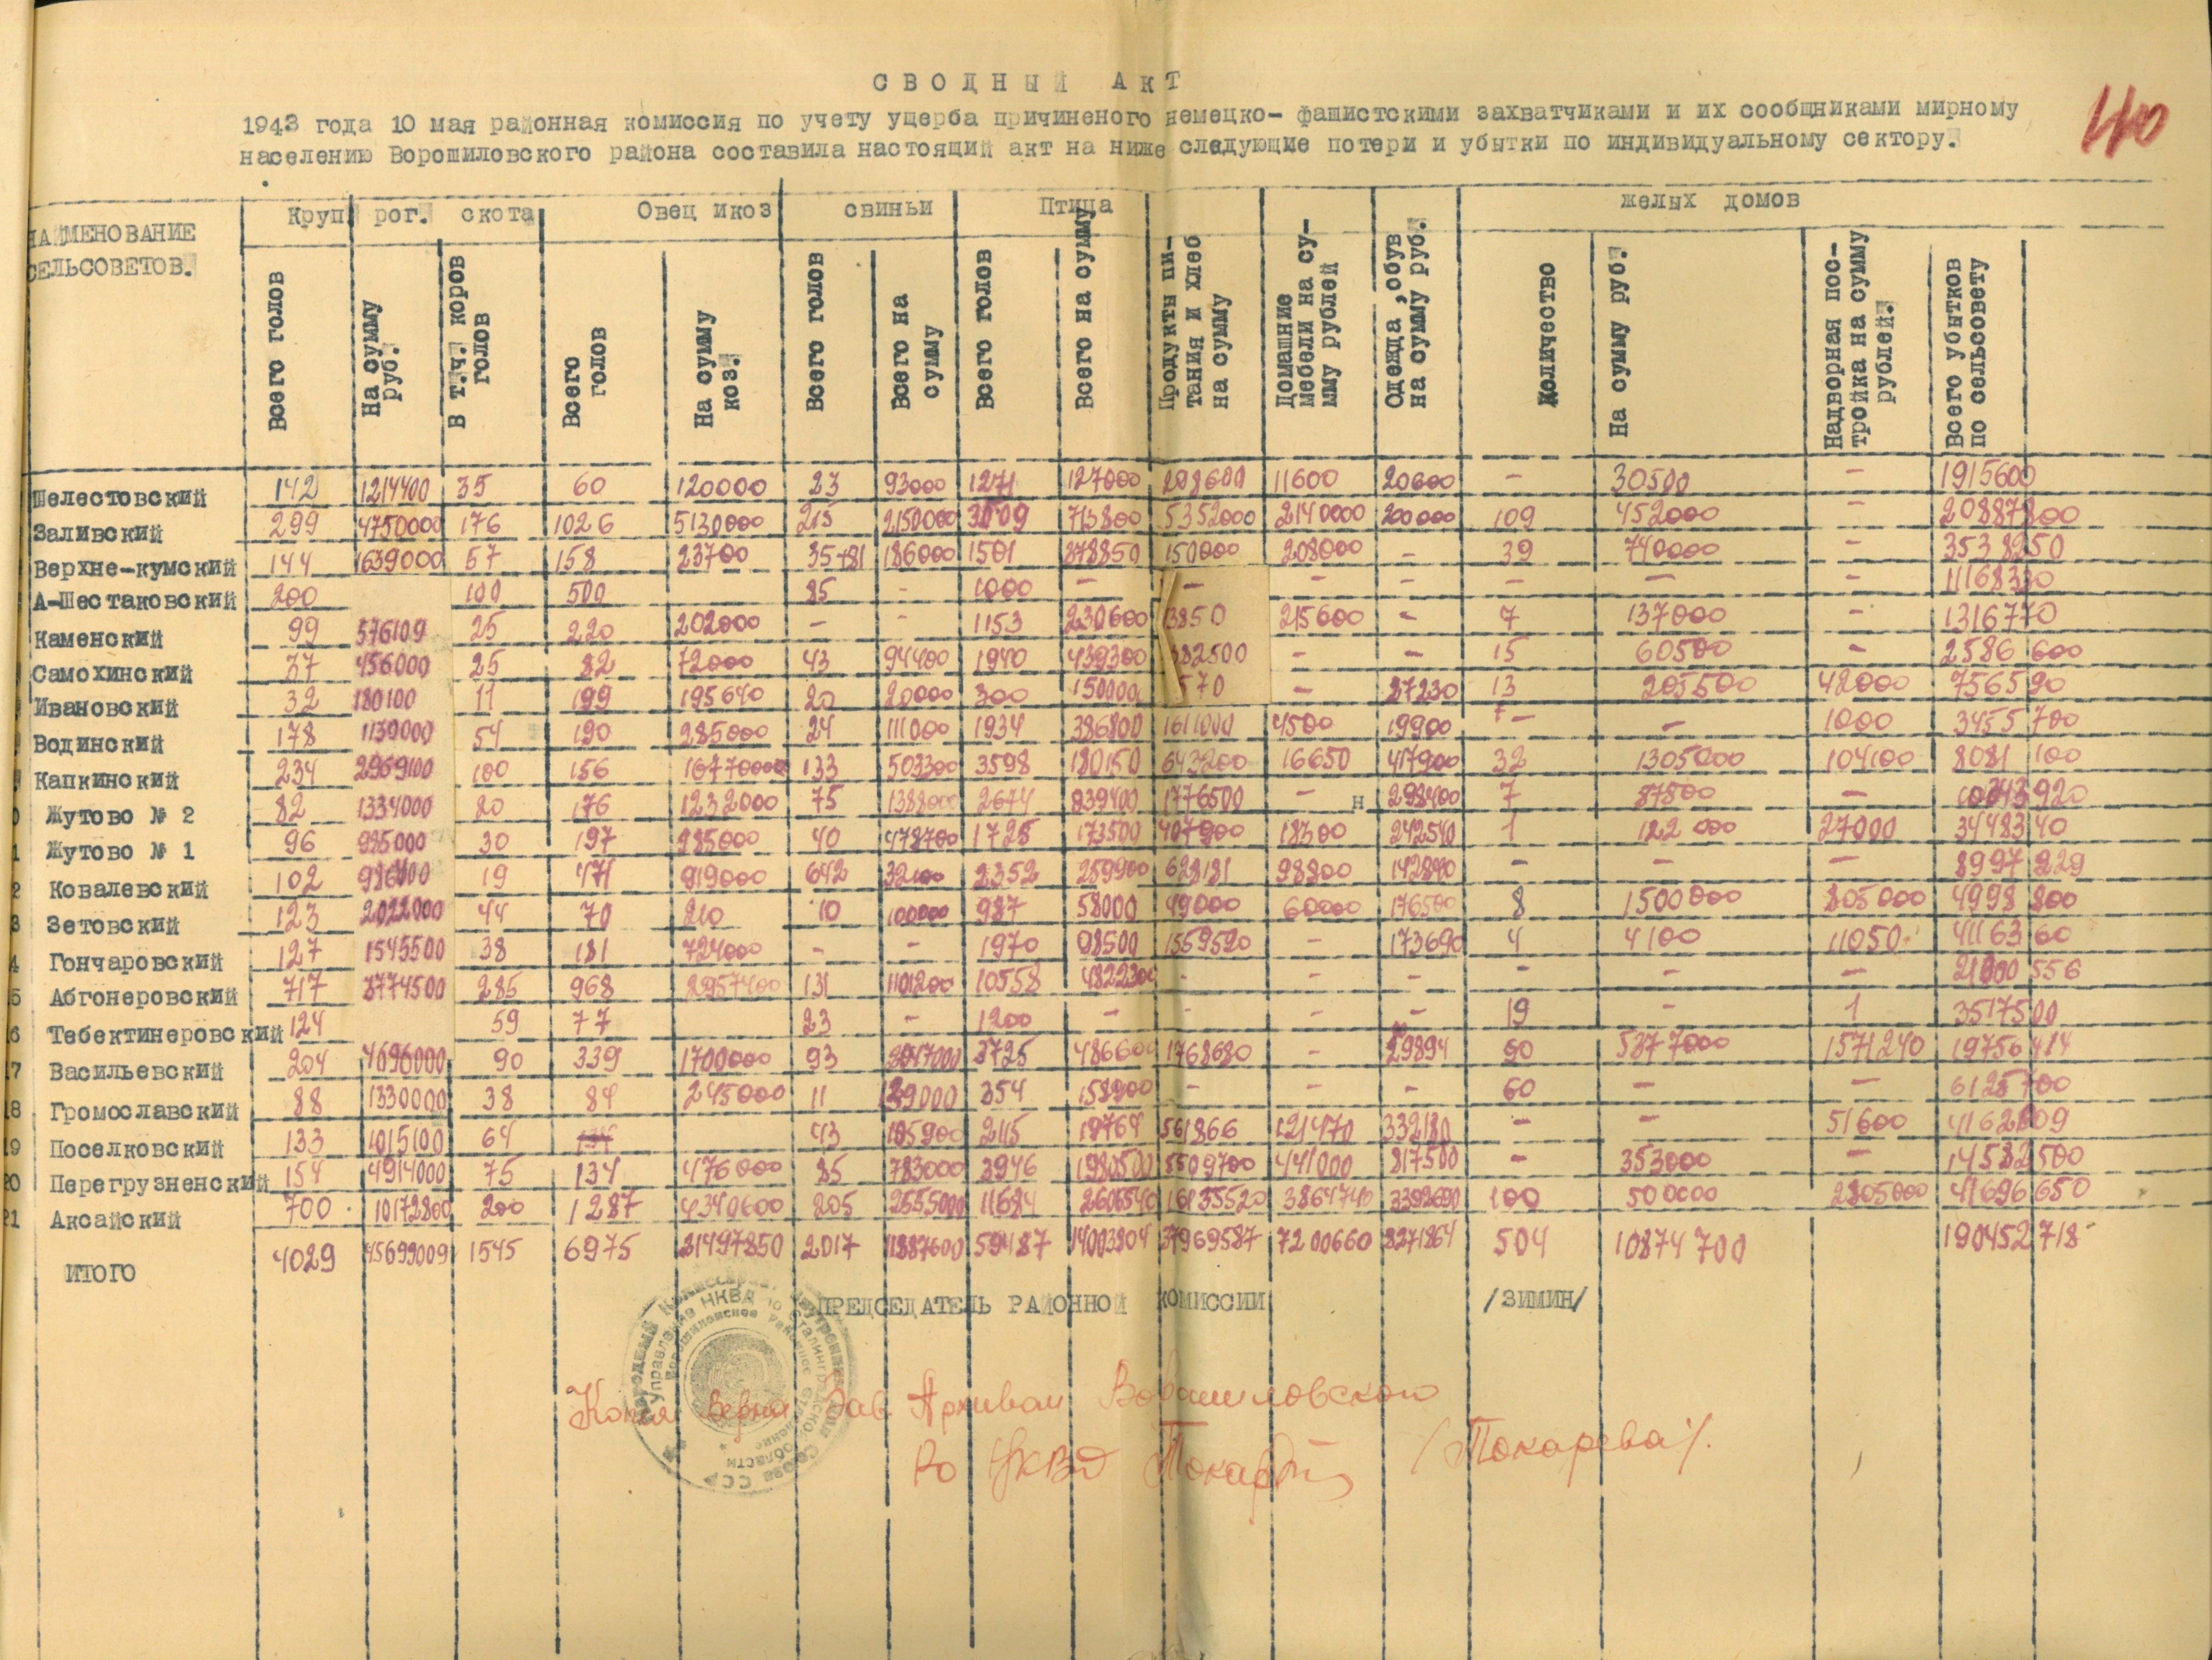 СВОДНЫЙ АКТ
40
1943 года 10 мая районная комиссия по учету ущерба причиненого немецко- фашистскими захватчиками и их сообщниками мирному
населению Ворошиловского района составила настоящий акт на ниже следующие потери и убытки по индивидуальному сектору.
НАИМЕНОВАНИЕ СЕЛЬСОВЕТОВ.
Круп. рог. скота
Овец и коз
свиньи
Птица
желых домов
Всего голов
На сумму руб.
В т.ч. коров голов
Всего голов
На сумму коз.
Всего голов
Всего на сумму
Всего голов
Всего на сумму
Продукты питания и хлеб на сумму
Домашние мебели на сумму рублей
Одежда, обув на сумму руб.
Количество
На сумму руб.
Надворная постройка на сумму рублей.
Всего убытков по сельсовету
Шелестовский 142 1214400 35 60 120000 23 93000 1271 127000 298600 11600 20600 - 30500 - 1915600
Заливский 299 4750000 176 1026 5130000 215 2150000 713800 5352000 2140000 200000 109 452000 - 20887800
Верхне-кумский 144 1639000 57 158 23700 35+81 186000 1501 378850 150000 208000 - 39 740000 - 3538250
А-Шестаковский 200 100 500 85 - 1000 - - - - - - - 11168330
Каменский 99 576109 25 220 202000 - - 1153 230600 13850 215600 - 7 137000 - 1316770
Самохинский 37 456000 25 82 72000 43 94400 1940 439300 382500 - - 15 60500 - 2586600
Ивановский 32 180100 11 199 195640 20 20000 300 150000 570 - 27230 13 205500 42000 756590
Водинский 178 1139000 54 190 285000 24 111000 1934 386800 1611000 4500 19900 - - 1000 3455700
Капкинский 234 2969100 100 156 1677000 133 503300 3598 180150 643200 16650 417900 32 1305000 104100 8081100
Жутово № 2 82 1334000 20 176 1232000 75 1388000 2674 839400 1776500 - н 298400 7 87800 -
Жутово № 1 96 985000 30 197 985000 40 478700 1725 173500 407900 18300 242540 1 122000 27000 3448340
Ковалевский 102 19 471 919000 642 2352 259900 628181 98800 142890 - - - 8997229
Зетовский 123 2022000 44 70 210 10 100000 987 58000 49000 60000 176500 8 1500000 805000 4998800
Гончаровский 127 1545500 38 181 724000 - - 1970 98500 1559520 - 173690 4 4100 11050 4116360
Абгонеровский 717 8774500 285 968 2957400 131 1101200 10558 4822300 - - - - - -
Тебектинеровский 124 59 77 23 - 1200 - - - - 19 - 1 3517500
Васильевский 204 4696000 90 339 1700000 93 3725 486600 1768680 - 90 5877000 1571240 19756414
Громославский 88 1330000 38 84 245000 11 354 158900 - - - 60 - - 6125700
Поселковский 133 1015100 64 43 105900 2115 19764 561866 121470 332180 - - 51600
Перегрузненский 154 4914000 75 134 476000 85 783000 3946 1980500 5509700 441000 817500 - 353000 - 14582500
Аксайский 700 10172800 200 1287 4340600 205 2555000 11684 2606540 16135520 3864740 3392690 100 500000 2805000 41696650
ИТОГО 4029 45699009 1545 6975 21497850 2017 11887600 59487 14003904 37969587 7200660 8271864 504 10874700 190452718
ПРЕДСЕДАТЕЛЬ РАЙОННОЙ КОМИССИИ /ЗИМИН/
Копия верна Зав Архивом Ворошиловского
Ро НКВД Токар /Токарева/.